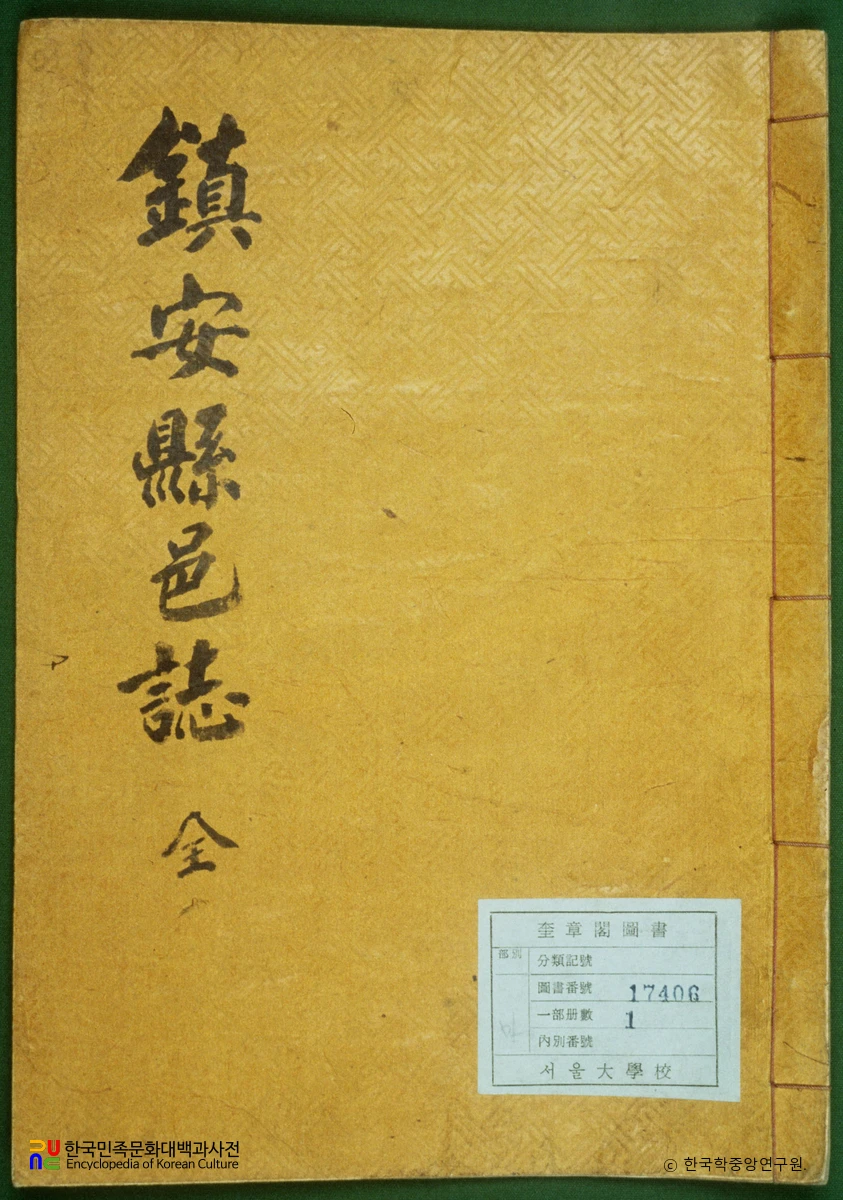 鎭安縣邑誌 全
奎章閣圖書
部別
分類記號
圖書番號 17406
一部册數 1
內別番號
서울大學校
한국민족문화대백과사전
Encyclopedia of Korean Culture
© 한국학중앙연구원